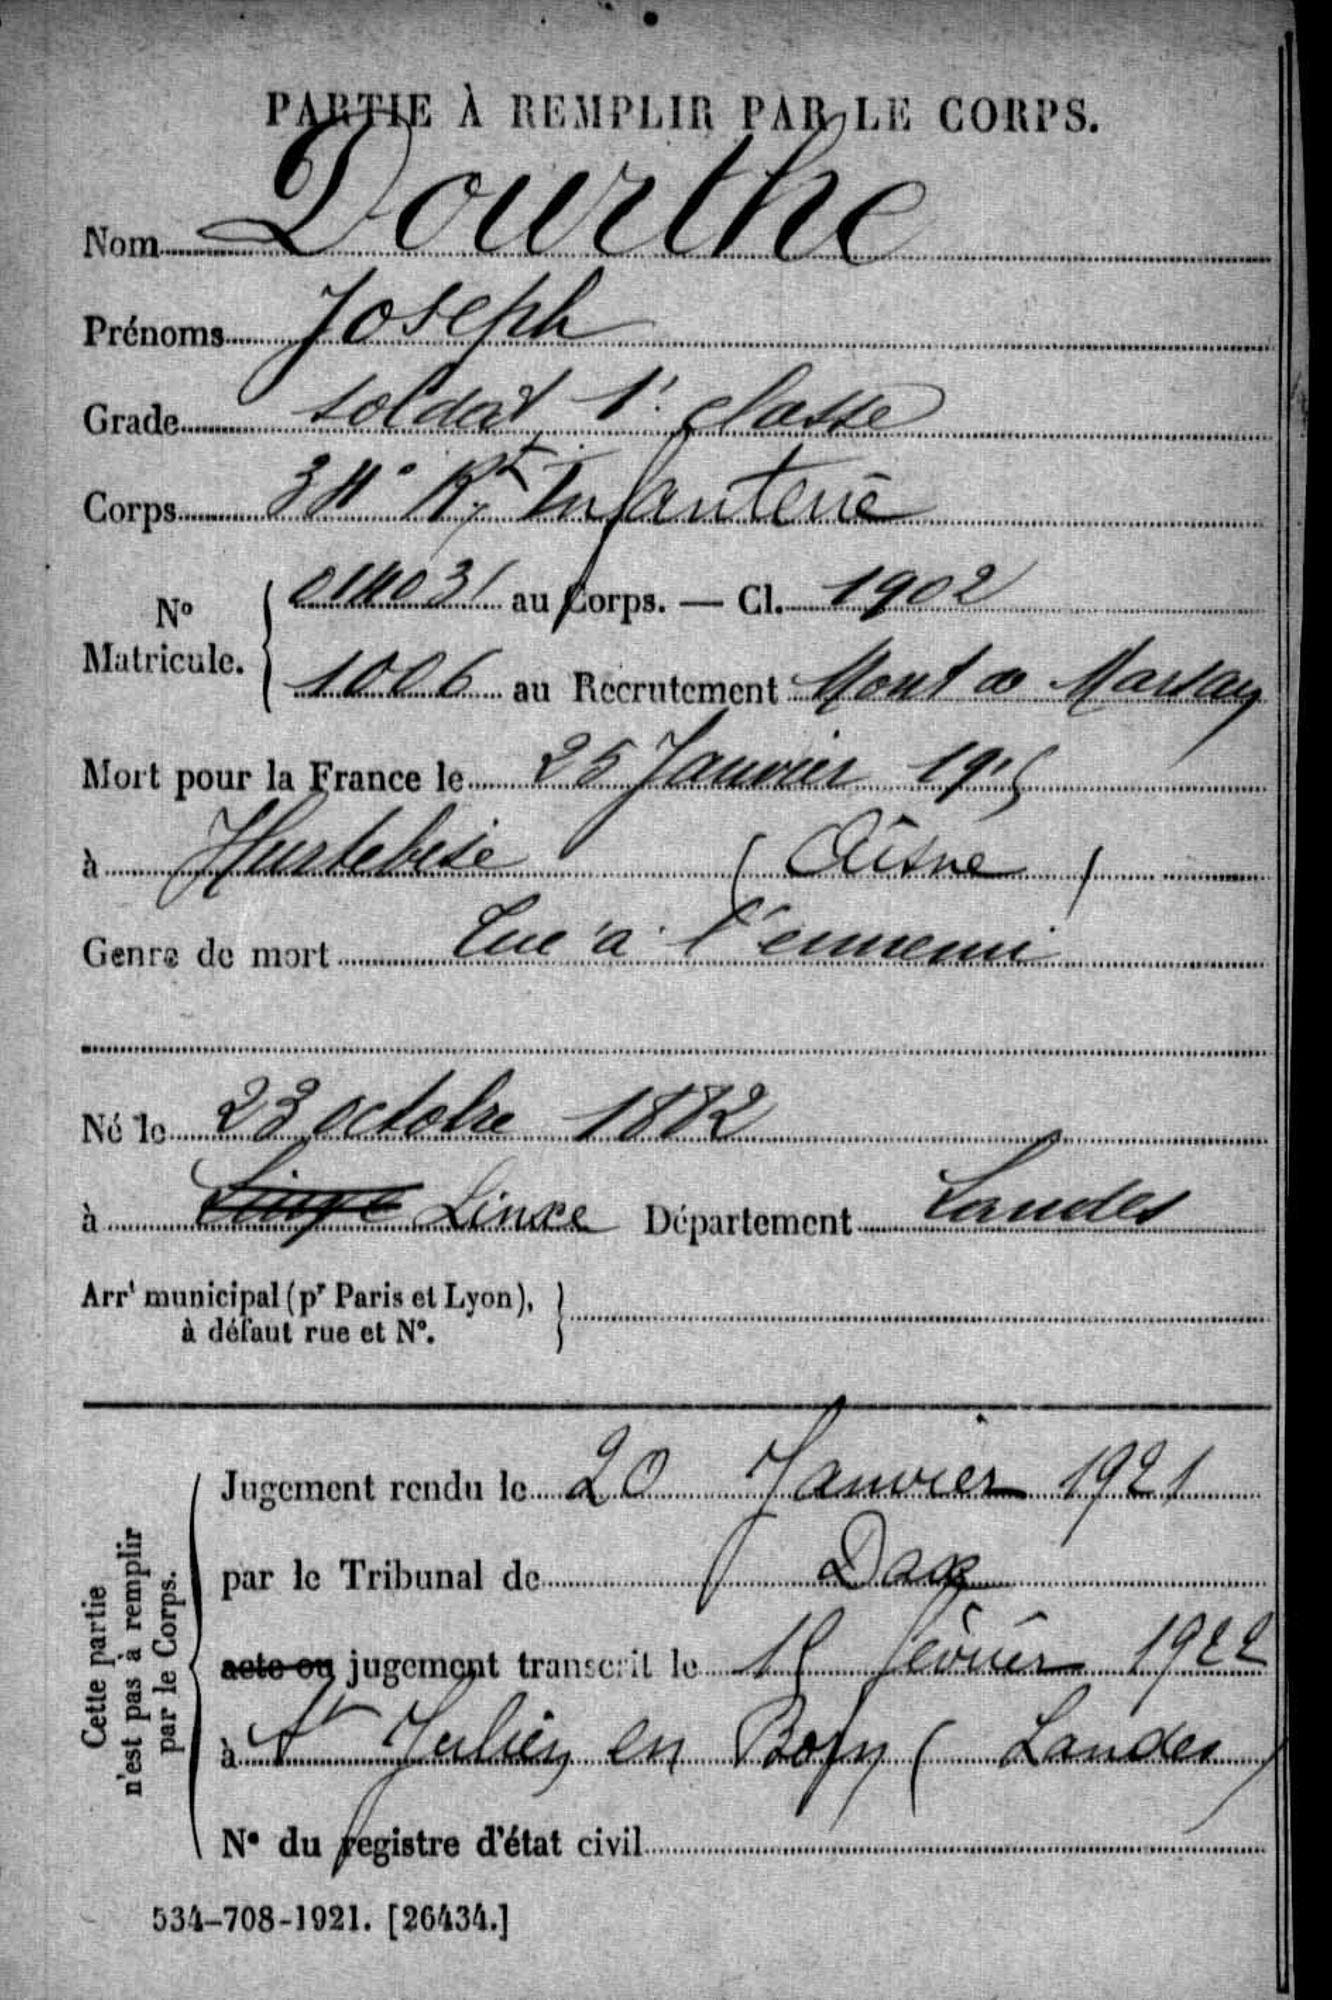 PARTIE À REMPLIR PAR LE CORPS.
Nom Dourthe
Prénoms Joseph
Grade soldat 1e classe
Corps 34e Rgt Infanterie
No Matricule. 014031 au Corps. — Cl. 1902
1006 au Recrutement Mont de Marsan
Mort pour la France le 25 Janvier 1915
à Hurtebise (Aisne)
Genre de mort Tué à l'ennemi
Né le 23 octobre 1882
à Linxe Département Landes
Arrt municipal (pr Paris et Lyon),
à défaut rue et No.
Cette partie
n'est pas à remplir
par le Corps.
Jugement rendu le 20 Janvier 1921
par le Tribunal de Dax
acte ou jugement transcrit le 15 février 1922
à St Julien en Born (Landes)
No du registre d'état civil
534-708-1921. [26434.]